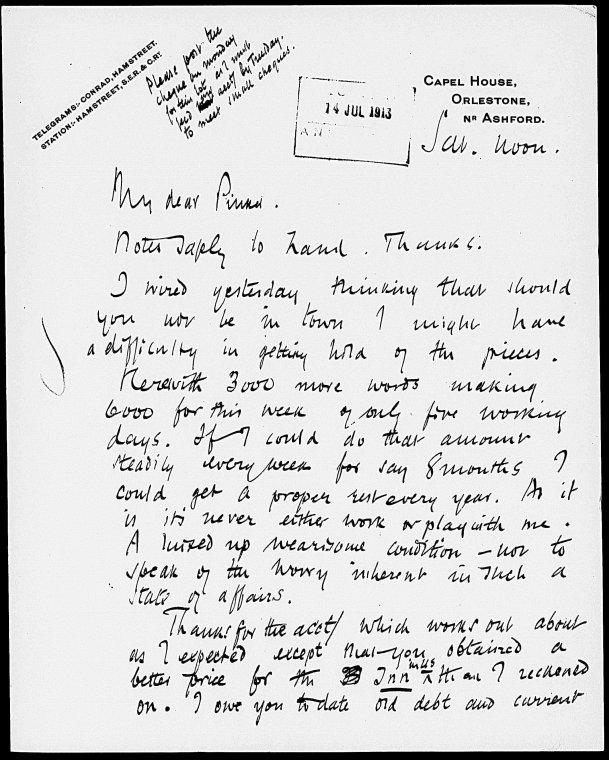 TELEGRAMS:- CONRAD, HAMSTREET.
STATION:- HAMSTREET, S.E.R. & C.RY.
Please post the
cheque on monday
for this lot as I must
feed my acct by Tuesday.
to meet small cheques.
14 JUL 1913
CAPEL HOUSE,
ORLESTONE,
NR ASHFORD.
Sat. noon.
My dear Pinker.
Notes safely to hand. Thanks.
I wired yesterday thinking that should
you not be in town I might have
a difficulty in getting hold of the pieces.
Herewith 3000 more words making
6000 for this week of only five working
days. If I could do that amount
steadily every week for say 8 months I
could get a proper rest every year. As it
is it's never either work or play with me.
A mixed up wearisome condition – not to
speak of the worry inherent in such a
state of affairs.
Thanks for the acct/ which works out about
as I expected except that you obtained a
better price for the Inn mss than I reckoned
on. I owe you to date old debt and current